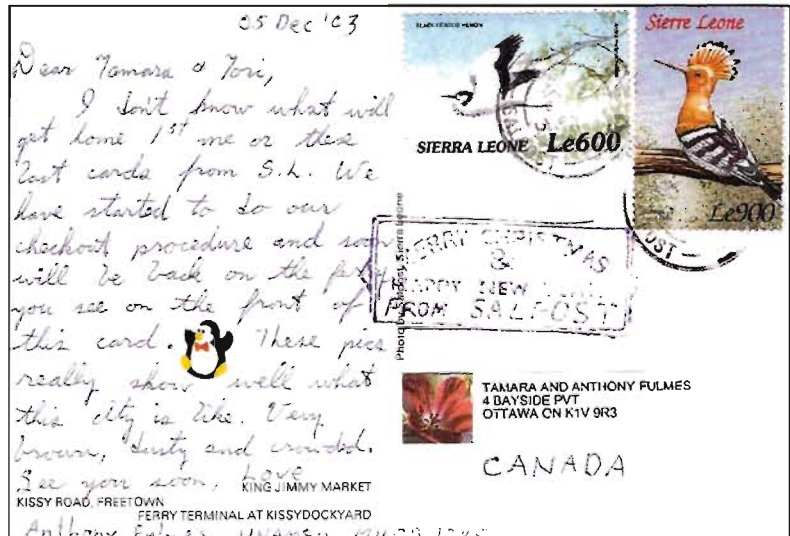 25 Dec '03
Dear Tamara & Tori,
I don't know what will
get home 1st me or these
last cards from S.L. We
have started to do our
checkout procedure and soon
will be back on the ferry
you see on the front of
this card. These pics
really show well what
this city is like. Very
brown, dusty and crowded.
See you soon, Love
KING JIMMY MARKET
KISSY ROAD, FREETOWN
FERRY TERMINAL AT KISSYDOCKYARD
Anthony Fulmes UNAMSIL
Photo by Salpost, Sierra Leone
BLACK HEADED HERON
SIERRA LEONE Le600
Sierra Leone
Le900
MERRY CHRISTMAS
&
HAPPY NEW YEAR
FROM SALPOST
TAMARA AND ANTHONY FULMES
4 BAYSIDE PVT
OTTAWA ON K1V 9R3
CANADA